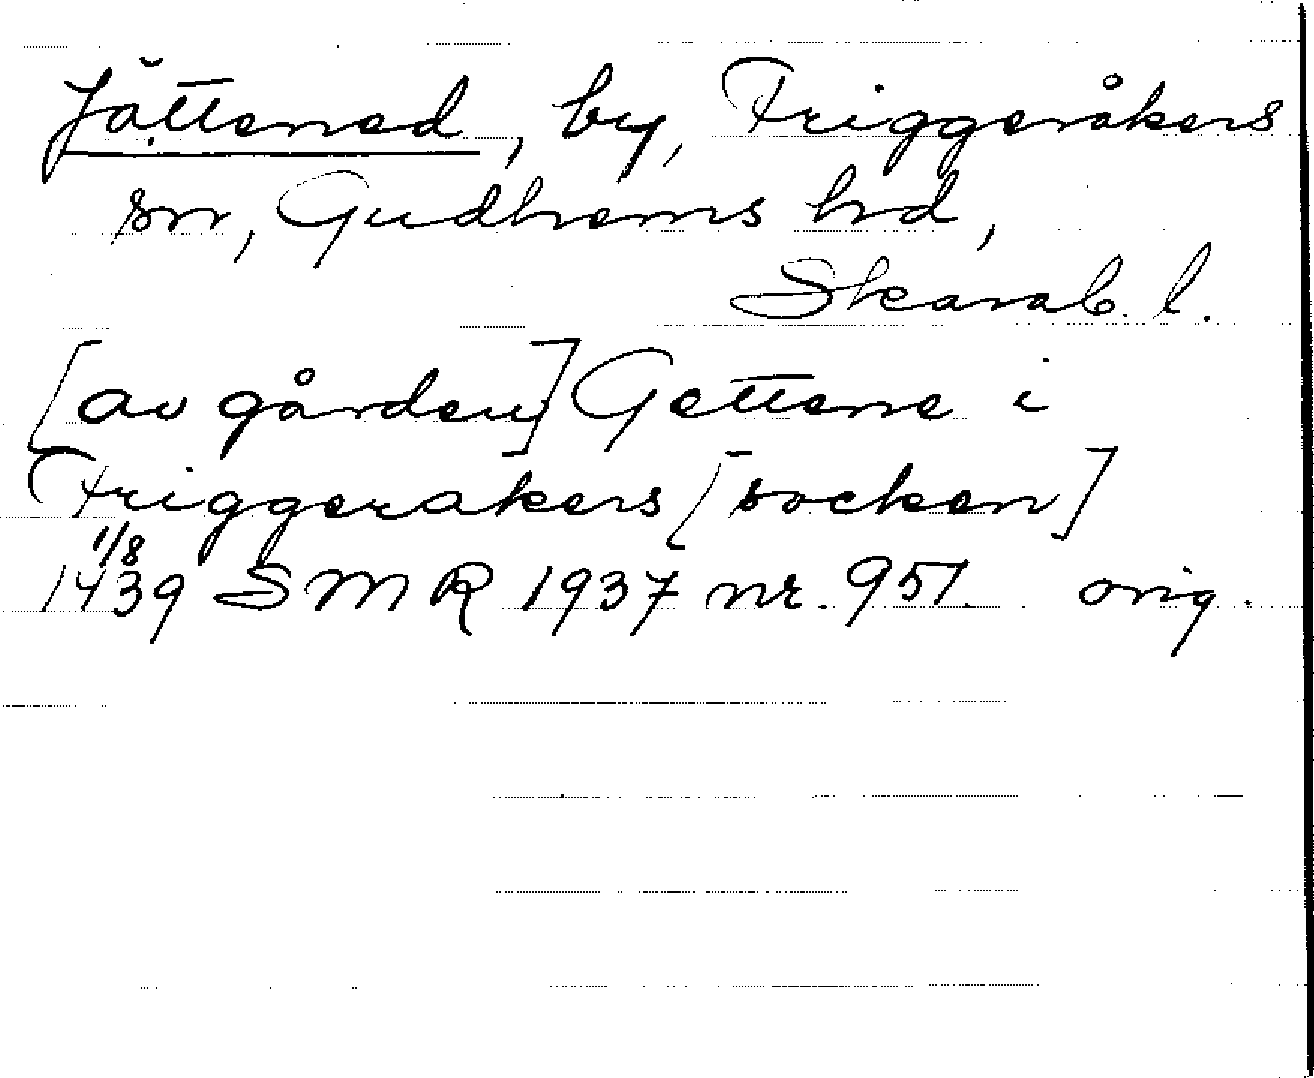 Jättened, by, Friggeråkers
sn, Gudhems hd,
Skarab. l.
[av gården] Gettene i
Friggerakers [socken]
1/8
1439 SMR 1937 nr. 951. orig.